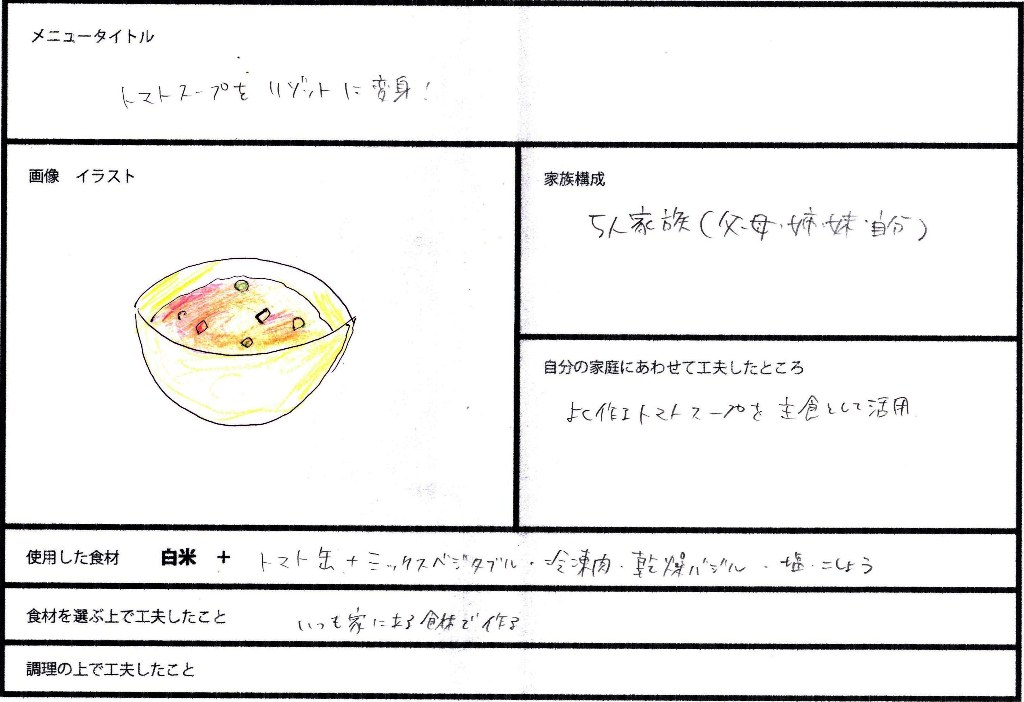 メニュータイトル
トマトスープを リゾットに変身!
画像 イラスト
家族構成
5人家族(父・母・姉・妹・自分)
自分の家庭にあわせて工夫したところ
よく作るトマトスープを 主食として活用
使用した食材 白米 + トマト缶+ミックスベジタブル・冷凍肉・乾燥バジル・塩・こしょう
食材を選ぶ上で工夫したこと いつも家にある食材で作る
調理の上で工夫したこと